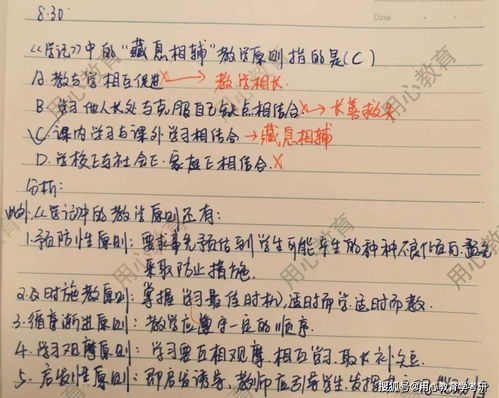 8.30
Date
《学记》中的“藏息相辅”教学原则指的是(C)
A 教与学相互促进 × → 教学相长
B. 学习他人长处与克服自己缺点相结合 × → 长善救失
C 课内学习与课外学习相结合 → 藏息相辅
D. 学校正与社会正·家庭正相结合. ×
分析:
此外,《学记》中的教学原则还有:
1.预防性原则: 要求事先预估到学生可能产生的种种不良倾向,
采取防止措施.
2.及时施教原则: 掌握学习最佳时机,适时而学,适时而教.
3.循序渐进原则: 教学应遵守一定的顺序.
4.学习观摩原则: 学习要互相观摩.相互学习.取长补短.
5.启发性原则: 即启发诱导,教师应引导学生,发挥
用心教育
用心教育
用心教育
用心教育
搜狐号@用心教育学考研